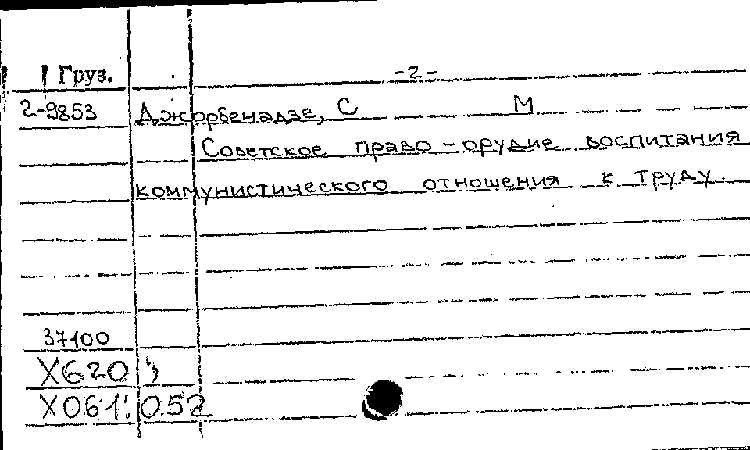 Груз. -2-
2-9853 Джорбенадзе, С М
Советское право - орудие воспитания
коммунистического отношения к труду.
37100
Х620
Х061:0.52